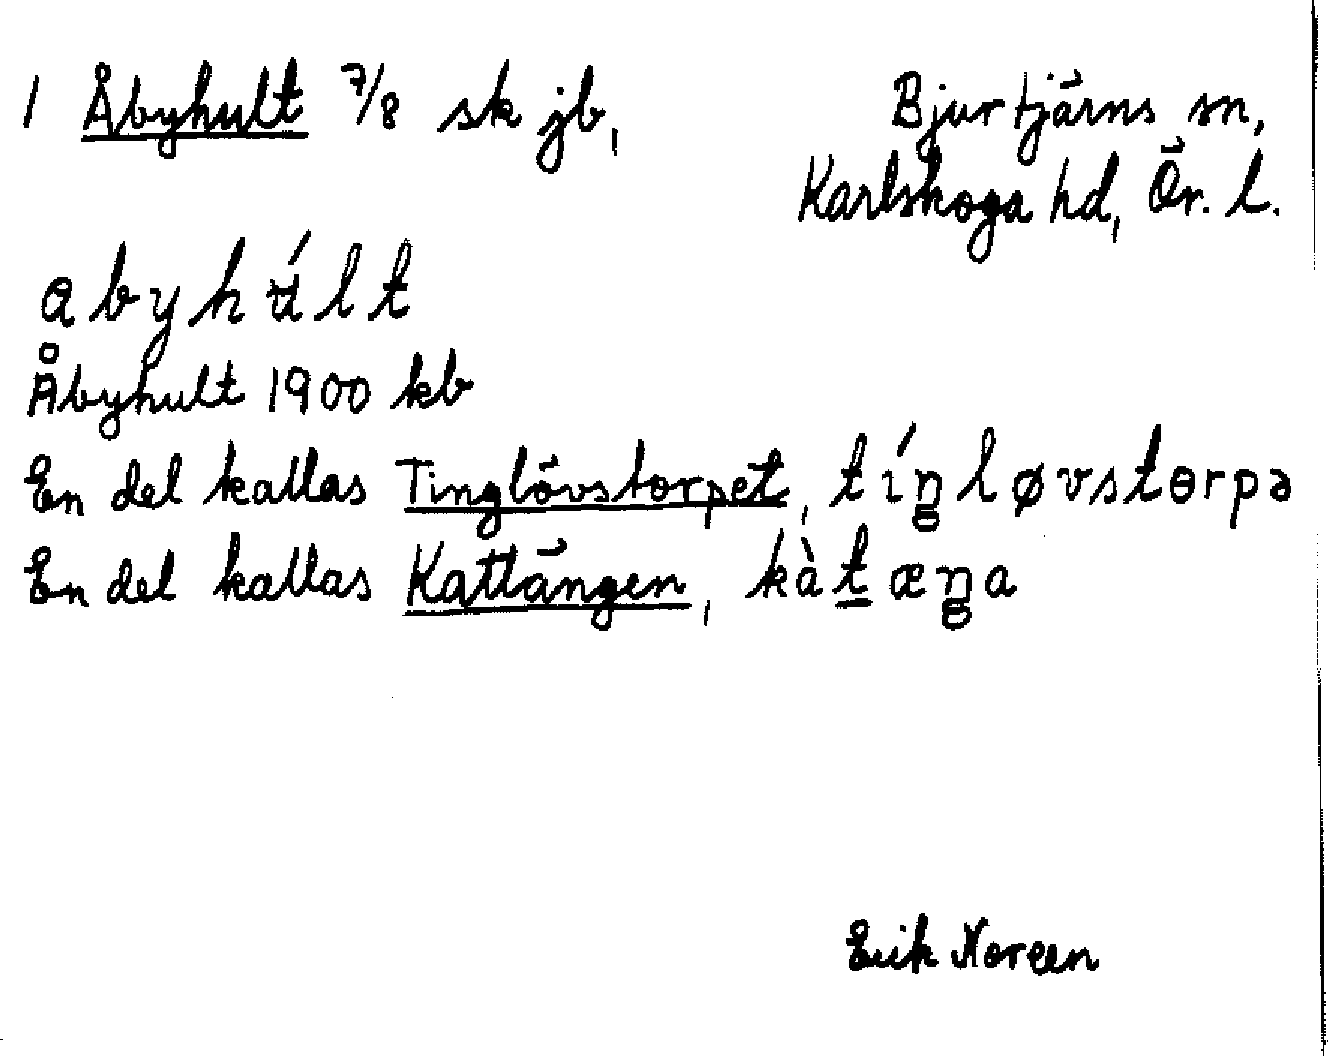 1 Åbyhult 7/8 sk jb, Bjurtjärns sn,
Karlskoga hd, Ör. l.
abyhúlt
Åbyhult 1900 kb
En del kallas Tinglövstorpet, tíŋløvstɵrpə
En del kallas Kattängen, kàtæŋa
Erik Noreen